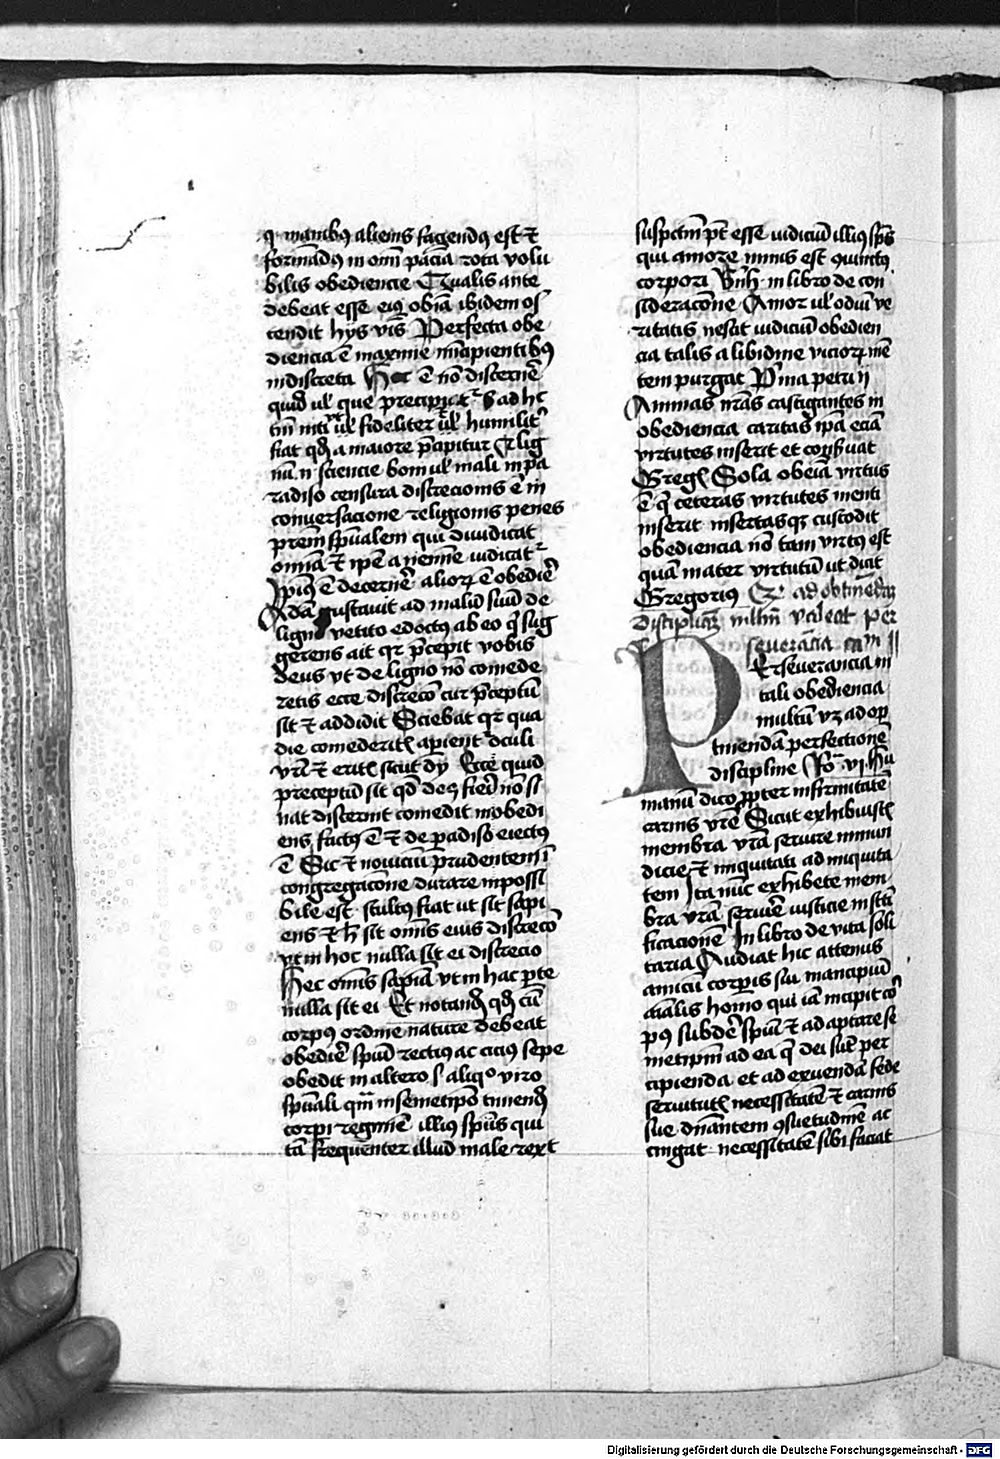 q manibꝯ alienis fagendꝯ est ⁊
formādꝯ in om̄i pācia rota volu
bilis obediencie Qualis ante
debeat esse eiꝯ obīa ibidem os
tendit hijs v̄bis Perfecta obe
diencia ē maxime incipientibꝯ
indiscreta Hoc ē nō discernē
quid ul̄ que precipitr̄ s ad hc
tm̄ niti ul̄ fideliter ul̄ humilitʾ
fiat qd̄ a maiore p̄cipitur Et lig
nū n̄ sciencie boni ul̄ mali in pa
radiso censura discrecionis ē in
conversacione religionis penes
prem̄ spūalem qui diiudicat
omnia ⁊ ipē a nemine iudicatr̄
Ipiꝯ ē decernē alioꝝ ē obediē
Adā gustavit ad malū suū de
ligno vetito edoctꝯ ab eo q̄ sug
gerens ait qr̄ p̄cepit vobis
deus vt de ligno nō comede
retis ecce discreco cur p̄ceptū
sit ⁊ addidit Sciebat qr̄ qua
die comederitis apient oculi
vr̄i ⁊ eritis sicut dij Ecce quid
preceptū sit qd̄ deꝯ fieri nō si
nat discernit comedit inobedi
ens factꝯ ē ⁊ de paradiso eiectꝯ
ē Sic ⁊ noviciū prudentem ī
congregacōne durare inpossi
bile est stultꝯ fiat ut sit sapi
ens ⁊ h̄ sit omīs eius discrecō
vt in hoc nulla sit ei discrecio
Hec omīs sapīa vt in hac p̄te
nulla sit ei Et notand̄ qd̄ cū
corpꝯ ordine nature debeat
obediē spūi rectius ac ciciꝯ sepe
obedit in altero s̄ aliqᵒ viro
spūali qm̄ in semetipō tuuend̄
corpi regimē illiꝯ spūs qui
tā frequenter illud male rexit
suspectū pt̄ esse iudiciū illiꝯ spūs
qui amore nimis est quinctꝯ
corpori Bn̄h in libro de con
sideracōne Amor ul̄ odiū ve
ritatis nescit iudiciū obedien
cia talis a libidine vicioꝝ mē
tem purgat Pima petri ij
Animas nr̄as castigantes in
obediencia caritas ipā eciā
virtutes inserit et coꝯseruat
Gregꝯ Sola obeīa virtus
ē q̄ ceteras virtutes menti
inserit insertasqꝫ custodit
obediencia nō tam virtꝯ est
quā mater virtutū ut dicit
Gregoriꝯ Qꝫ ad obtinendā
disciplinā multm̄ valeat per
severācia cam II
PErseverancia in
tali obediencia
multū vꝫ ad op
tinendā perfectionē
discipline Ro. vi. Hu
manū dico ꝓpter infirmitatē
carnis vr̄e Sicut exhibuistis
membra vr̄a servire inmun
dicie ⁊ iniquitati ad iniquita
tem Ita nūc exhibete mem
bra vr̄a servire iusticie in scti
ficacionē In libro de vita soli
taria Audiat hic attenus
amicū corporis sui mancipiū
aīalis homo qui iā incipit cor
pꝯ subdē spūi ⁊ ad aptare se
metipm̄ ad ea q̄ dei sūt per
cipienda et ad exuendā fede
servitutis necessitatē ⁊ carnis
sue dn̄antem ꝯsuetudinē ac
cingat necessitatē sibi faciat
Digitalisierung gefördert durch die Deutsche Forschungsgemeinschaft - DFG